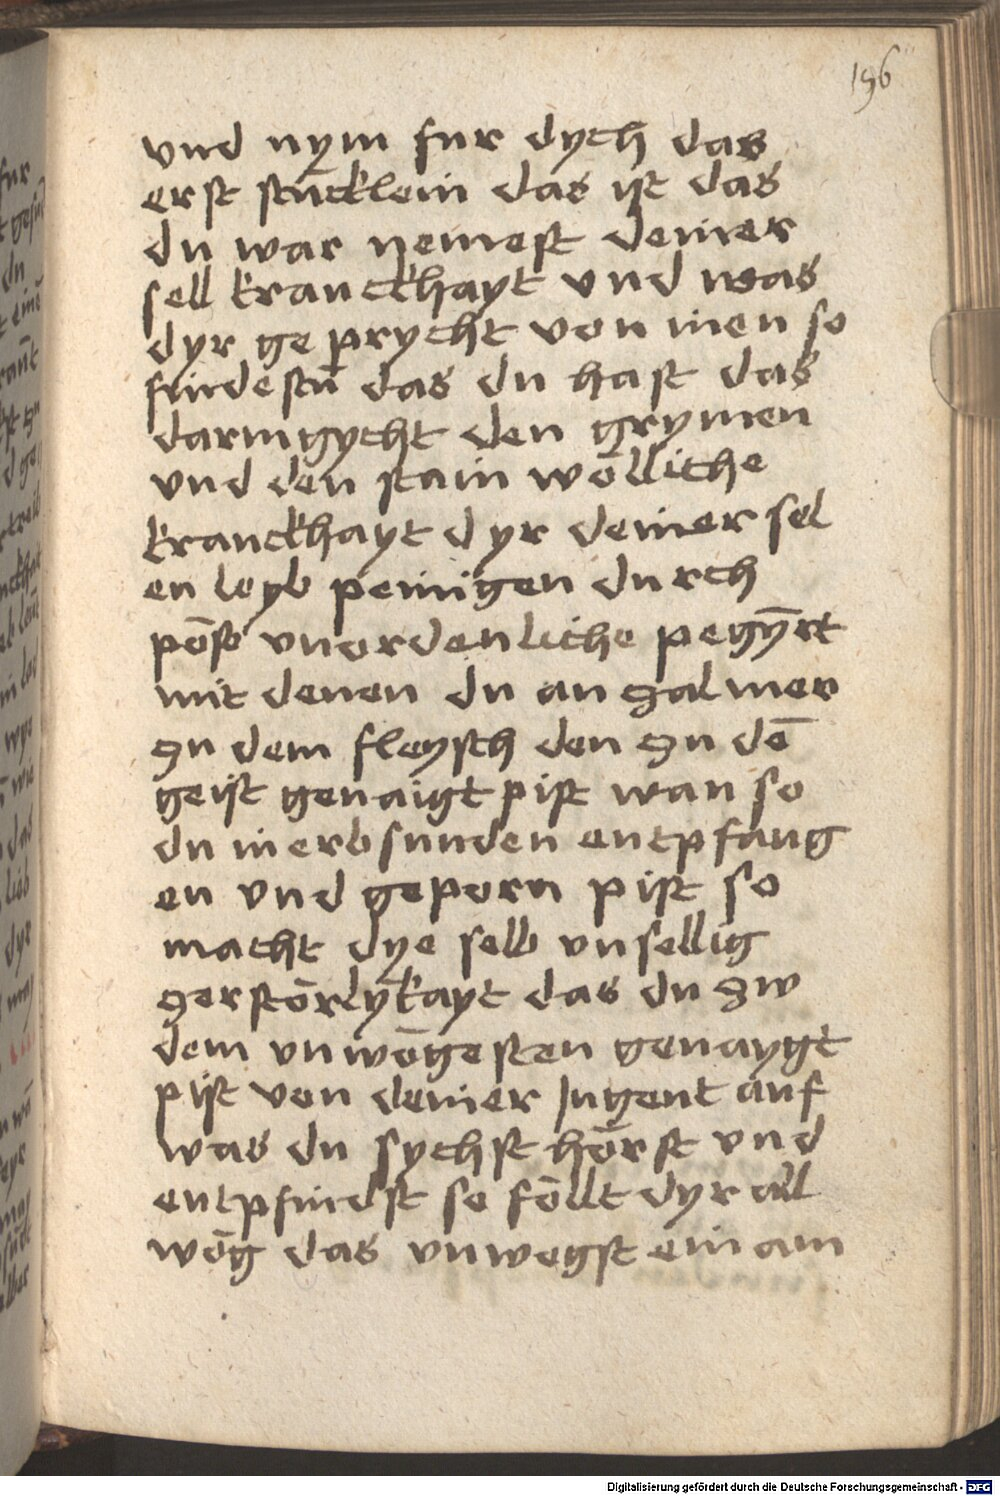 196
vnd nym fur dych das
erst stucklein das ist das
du war nemest deiner
sell kranckhayt vnd was
dyr geprycht von inen so
findestu das du hast das
darmgycht den grymen
vnd den stain wölliche
kranckhayt dyr deiner sel
en leyb peinigen durch
pöse vnordenliche pegyrt
mit denen du an zal mer
zu dem fleysch den zu dē
geist genaigt pist wan so
du in erbsunden entpfang
en vnd geporn pist so
macht dye selb vnsellig
zerstörlykayt das du zw
dem vnwögesten genaygt
pist von deiner Jugent auf
was du sychst hörst vnd
entpfindst so föllt dyr all
wög das vnwegst ein am
Digitalisierung gefördert durch die Deutsche Forschungsgemeinschaft - DFG